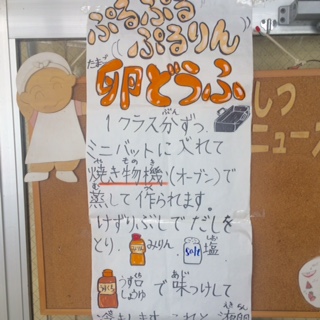 ぷるぷる
ぷるりん
たまご
卵どうふ
1クラス分ずつ
ぶん
ミニバットに入れて
焼き物機(オーブン)で
蒸して作られます。
けずりぶしでだしを
とり、みりん、塩
しお
Salt
うす口
しょうゆ
で味つけして
あじ
しつ
ニュース